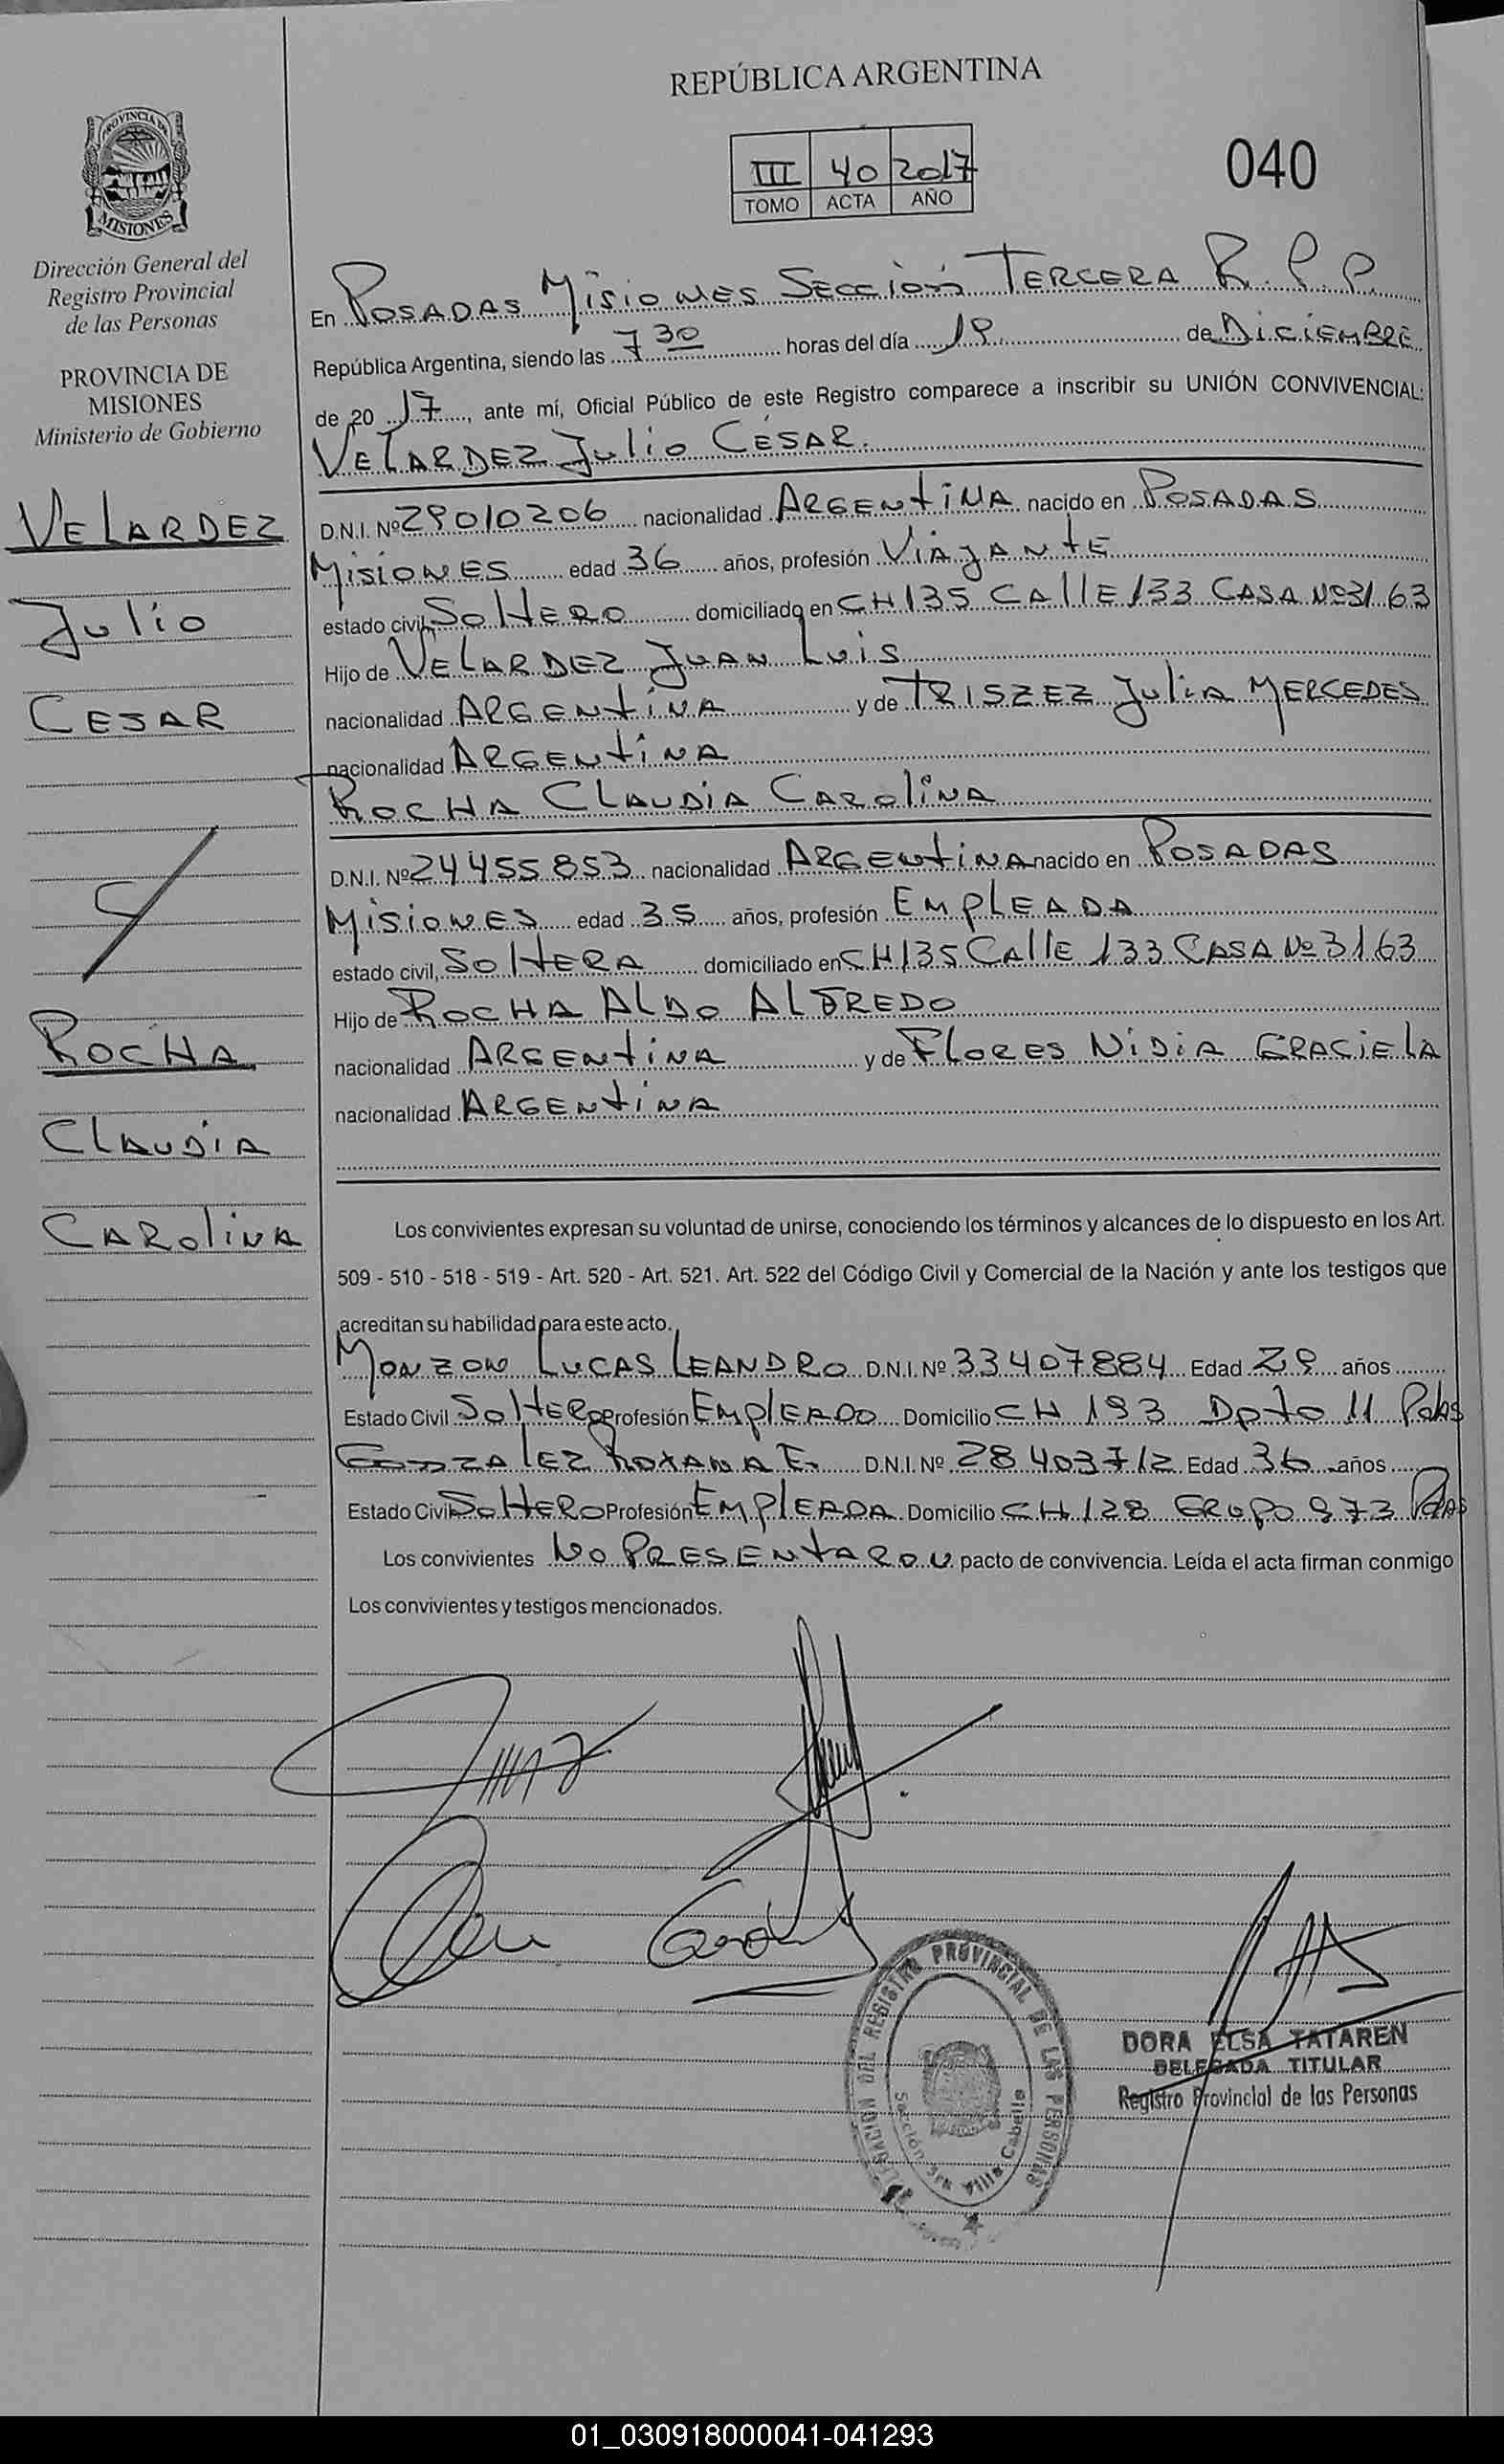 REPÚBLICA ARGENTINA
III 40 2017
TOMO ACTA AÑO
040
PROVINCIA DE
MISIONES
Dirección General del
Registro Provincial
de las Personas
PROVINCIA DE
MISIONES
Ministerio de Gobierno
VELARDEZ
Julio
CESAR
C/
ROCHA
CLAUDIA
CAROLINA
En POSADAS MISIONES SECCIÓN TERCERA R.P.P.
República Argentina, siendo las 7 30 horas del día 19 de DICIEMBRE
de 20 17, ante mí, Oficial Público de este Registro comparece a inscribir su UNIÓN CONVIVENCIAL:
VELARDEZ Julio CÉSAR.
D.N.I. Nº 29010206 nacionalidad ARGENTINA nacido en POSADAS
MISIONES edad 36 años, profesión VIAJANTE
estado civil, SOLTERO domiciliado en CH 135 CALLE 133 CASA Nº 3163
Hijo de VELARDEZ JUAN LUIS
nacionalidad ARGENTINA y de TRISZEZ JULIA MERCEDES
nacionalidad ARGENTINA
ROCHA CLAUDIA CAROLINA
D.N.I. Nº 24455853 nacionalidad ARGENTINA nacido en POSADAS
MISIONES edad 35 años, profesión EMPLEADA
estado civil, SOLTERA domiciliado en CH 135 CALLE 133 CASA Nº 3163
Hijo de ROCHA ALDO ALFREDO
nacionalidad ARGENTINA y de FLORES NIDIA GRACIELA
nacionalidad ARGENTINA
Los convivientes expresan su voluntad de unirse, conociendo los términos y alcances de lo dispuesto en los Art.
509 - 510 - 518 - 519 - Art. 520 - Art. 521. Art. 522 del Código Civil y Comercial de la Nación y ante los testigos que
acreditan su habilidad para este acto.
MONZON LUCAS LEANDRO D.N.I. Nº 33407884 Edad 29 años
Estado Civil SOLTERO Profesión EMPLEADO Domicilio CH 193 Dpto 11 Pdas
GONZALEZ ROXANA E. D.N.I. Nº 28403712 Edad 36 años
Estado Civil SOLTERO Profesión EMPLEADA Domicilio CH 128 GRUPO 973 Pdas
Los convivientes NO PRESENTARON pacto de convivencia. Leída el acta firman conmigo
Los convivientes y testigos mencionados.
DELEGACION DEL REGISTRO PROVINCIAL DE LAS PERSONAS
Sección 3ra Villa Cabello
DORA ELSA TATAREN
DELEGADA TITULAR
Registro Provincial de las Personas
01_030918000041-041293